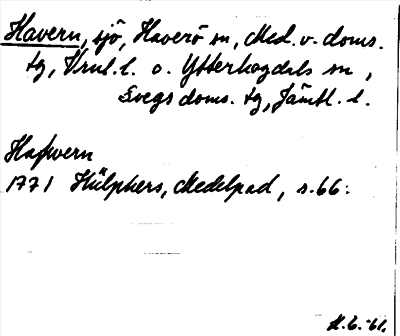 Havern, sjö, Haverö sn, Med. v. doms.
tg, Vrnl. l. o. Ytterhogdals sn,
Svegs doms. tg, Jämtl. l.
Hafwern
1771 Hülphers, Medelpad, s. 66.
H. G. -61.